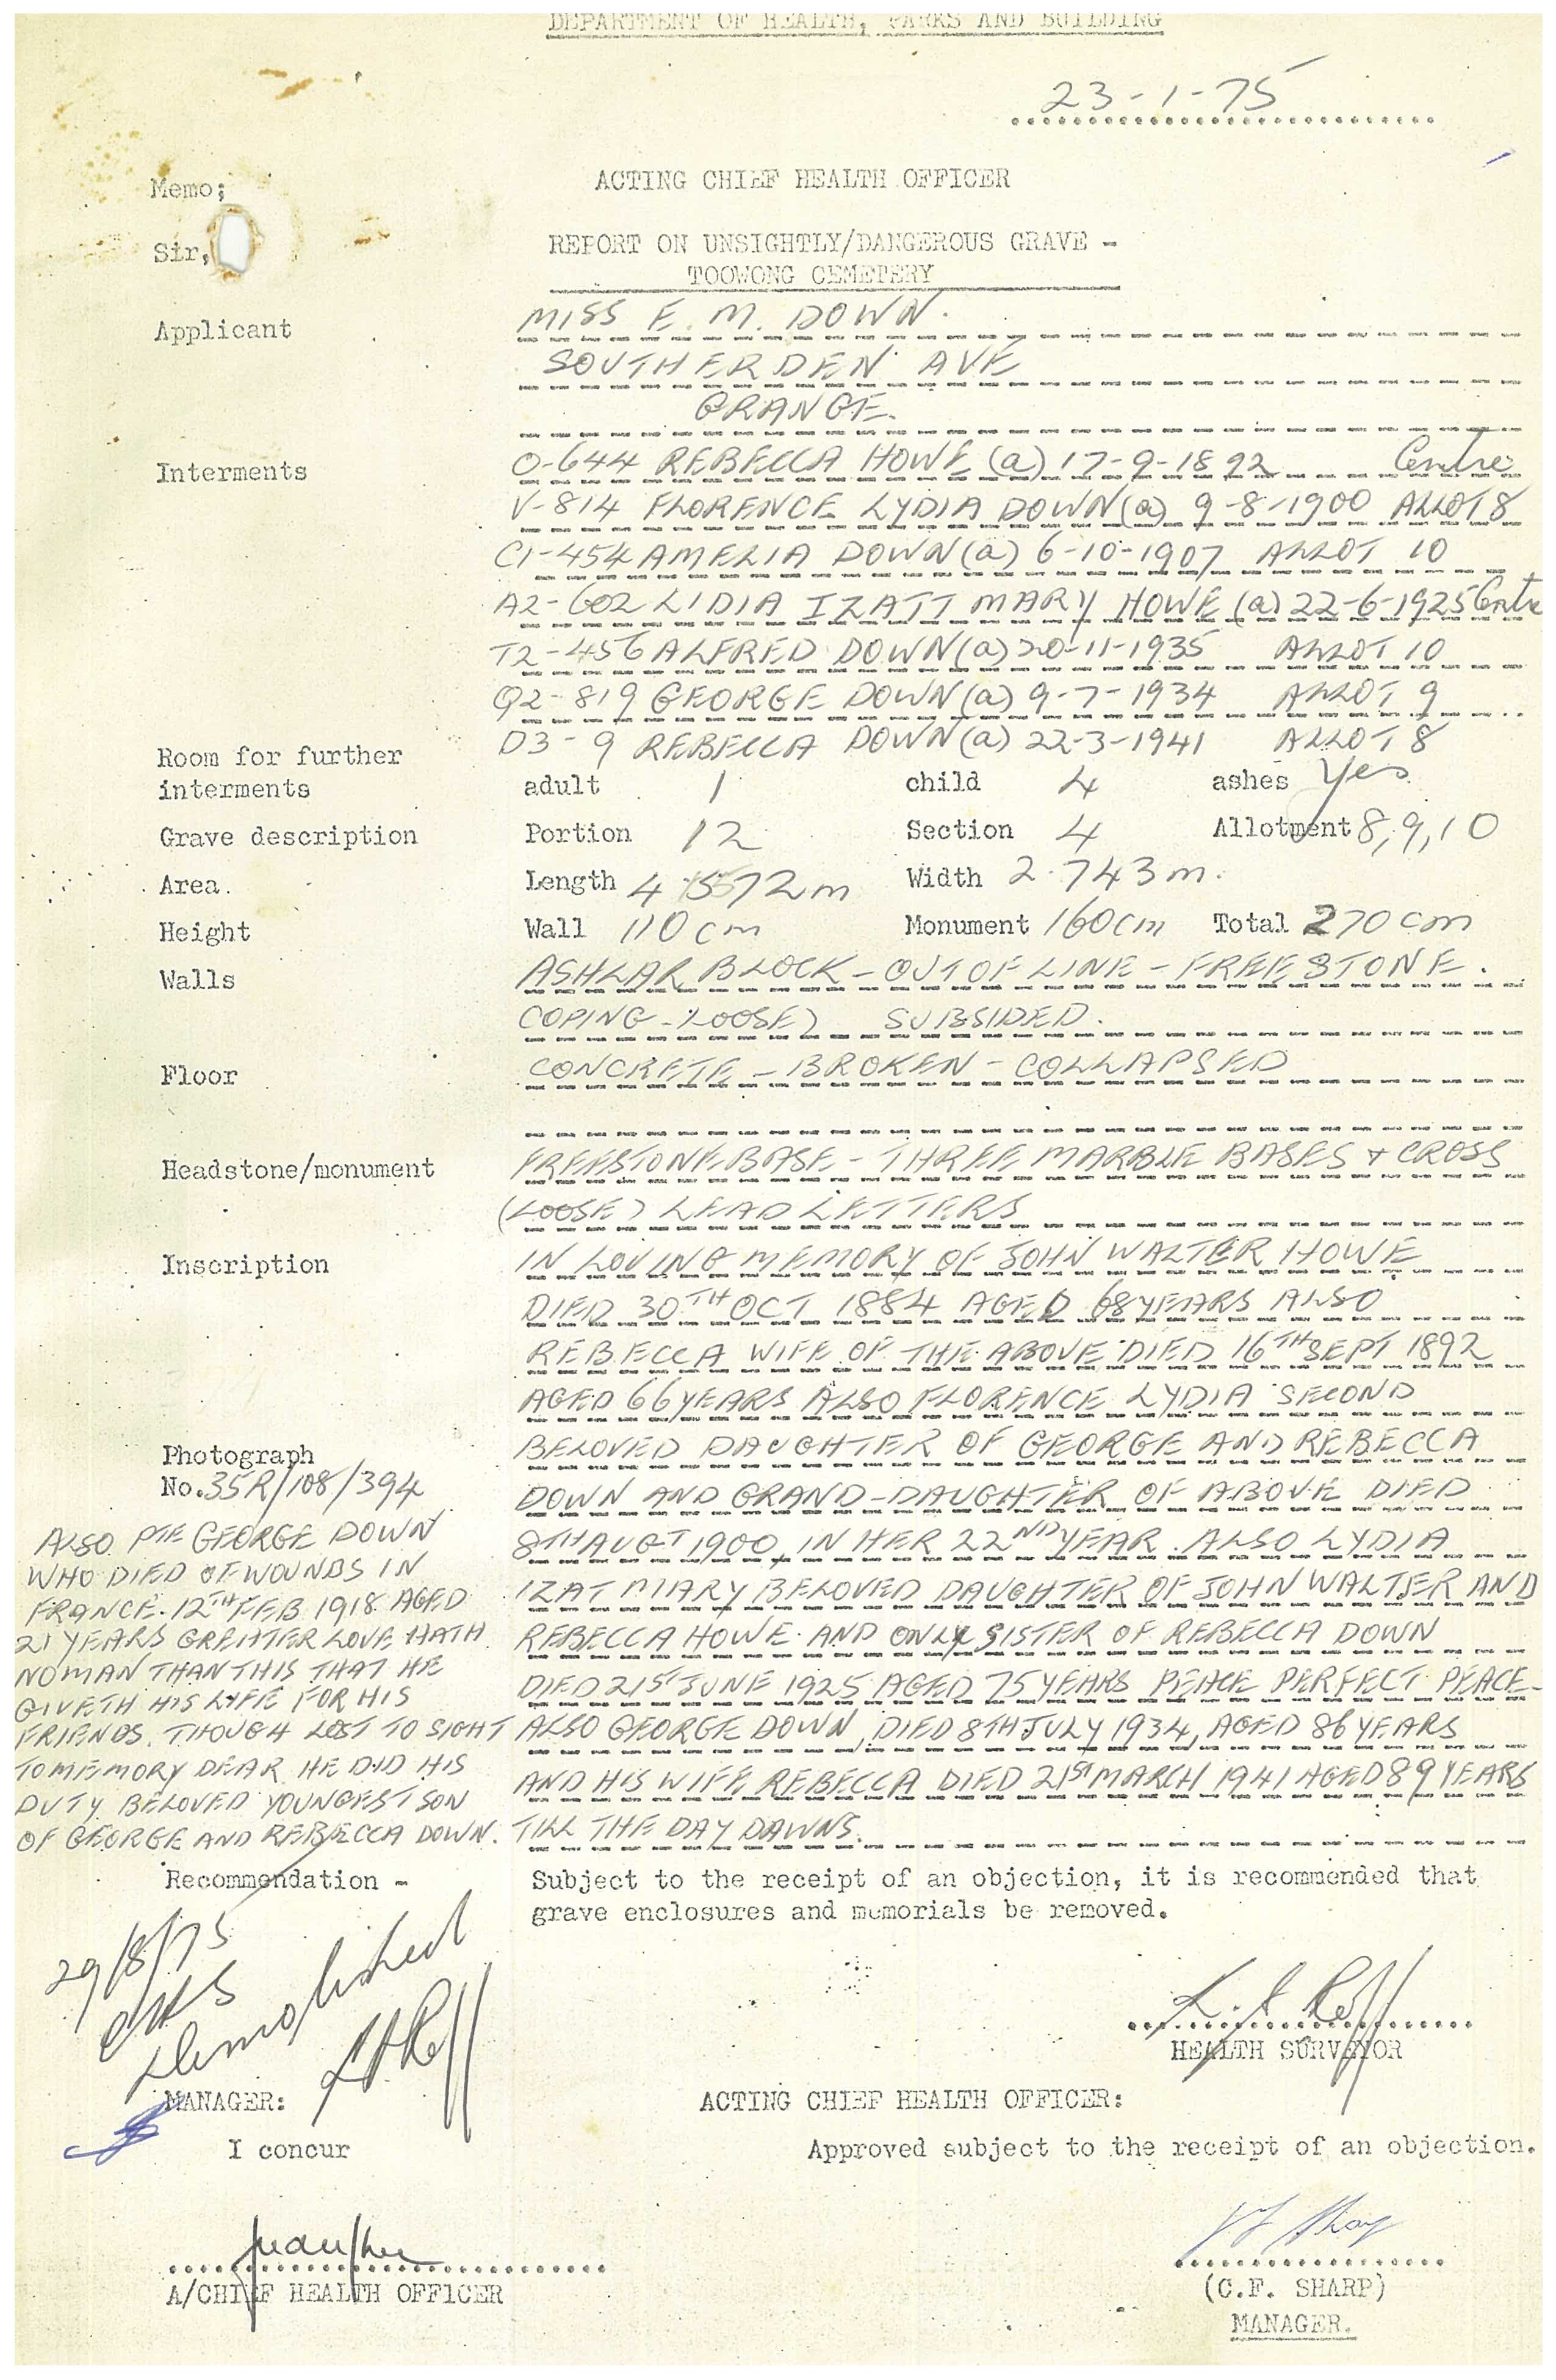 DEPARTMENT OF HEALTH, PARKS AND BUILDING
23-1-75
Memo;
ACTING CHIEF HEALTH OFFICER
Sir,
REPORT ON UNSIGHTLY/DANGEROUS GRAVE -
TOOWONG CEMETERY
Applicant MISS E. M. DOWN.
SOUTHERDEN AVE
GRANGE.
Interments O-644 REBECCA HOWE (a) 17-9-1892 Centre
V-814 FLORENCE LYDIA DOWN (a) 9-8-1900 ALLOT 8
C1-454 AMELIA DOWN (a) 6-10-1907 ALLOT 10
A2-602 LIDIA IZATT MARY HOWE (a) 22-6-1925 Centre
T2-456 ALFRED DOWN (a) 20-11-1935 ALLOT 10
Q2-819 GEORGE DOWN (a) 9-7-1934 ALLOT 9
D3-9 REBECCA DOWN (a) 22-3-1941 ALLOT 8
Room for further
interments adult 1 child 4 ashes Yes
Grave description Portion 12 Section 4 Allotment 8,9,10
Area. Length 4.572m Width 2.743m.
Height Wall 110cm Monument 160cm Total 270cm
Walls ASHLAR BLOCK - OUT OF LINE - FREESTONE.
COPING - LOOSE) SUBSIDED.
Floor CONCRETE - BROKEN - COLLAPSED
Headstone/monument FREESTONE BASE - THREE MARBLE BASES + CROSS
(LOOSE) LEAD LETTERS
Inscription IN LOVING MEMORY OF JOHN WALTER HOWE
DIED 30TH OCT 1884 AGED 68 YEARS ALSO
REBECCA WIFE OF THE ABOVE DIED 16TH SEPT 1892
AGED 66 YEARS ALSO FLORENCE LYDIA SECOND
BELOVED DAUGHTER OF GEORGE AND REBECCA
DOWN AND GRAND-DAUGHTER OF ABOVE DIED
8TH AUGT 1900 IN HER 22ND YEAR. ALSO LYDIA
IZAT MARY BELOVED DAUGHTER OF JOHN WALTER AND
REBECCA HOWE AND ONLY SISTER OF REBECCA DOWN
DIED 21ST JUNE 1925 AGED 75 YEARS PEACE PERFECT PEACE-
ALSO GEORGE DOWN, DIED 8TH JULY 1934, AGED 86 YEARS
AND HIS WIFE REBECCA DIED 21ST MARCH 1941 AGED 89 YEARS
TILL THE DAY DAWNS.
Photograph
No. 35R/108/394
ALSO PTE GEORGE DOWN
WHO DIED OF WOUNDS IN
FRANCE. 12TH FEB 1918 AGED
21 YEARS GREATER LOVE HATH
NO MAN THAN THIS THAT HE
GIVETH HIS LIFE FOR HIS
FRIENDS. THOUGH LOST TO SIGHT
TO MEMORY DEAR HE DID HIS
DUTY BELOVED YOUNGEST SON
OF GEORGE AND REBECCA DOWN.
Recommendation - Subject to the receipt of an objection, it is recommended that
grave enclosures and memorials be removed.
29/8/75
demolished
HEALTH SURVEYOR
MANAGER: ACTING CHIEF HEALTH OFFICER:
I concur Approved subject to the receipt of an objection.
A/CHIEF HEALTH OFFICER
(C.F. SHARP)
MANAGER.